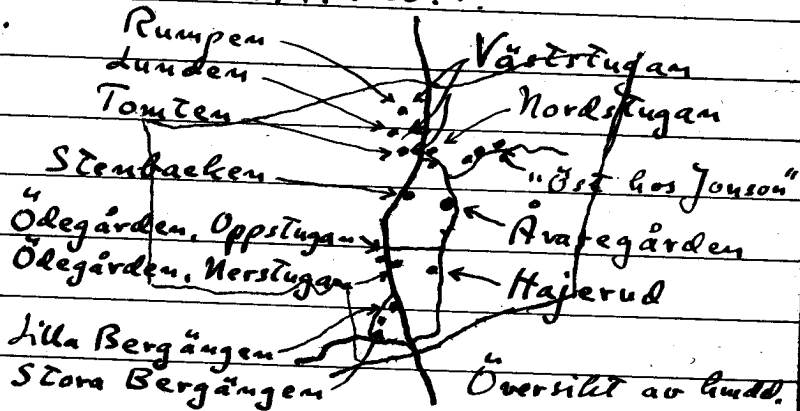 Rumpen
Lunden
Tomten
Stenbacken
Ödegården, Oppstugan
Ödegården, Nerstugan
Lilla Bergängen
Stora Bergängen
Väststugan
Nordstugan
"Öst hos Jonson"
Åvaregården
Hajerud
Översikt av